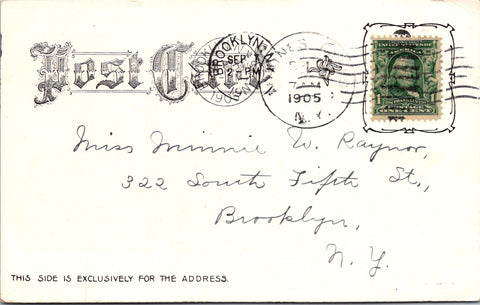 Post
BROOKLYN
SEP
2 PM
1905
1905
N. Y.
ONE CENT
Miss Minnie W. Raynor,
322 South Fifth St.,
Brooklyn,
N. Y.
THIS SIDE IS EXCLUSIVELY FOR THE ADDRESS.